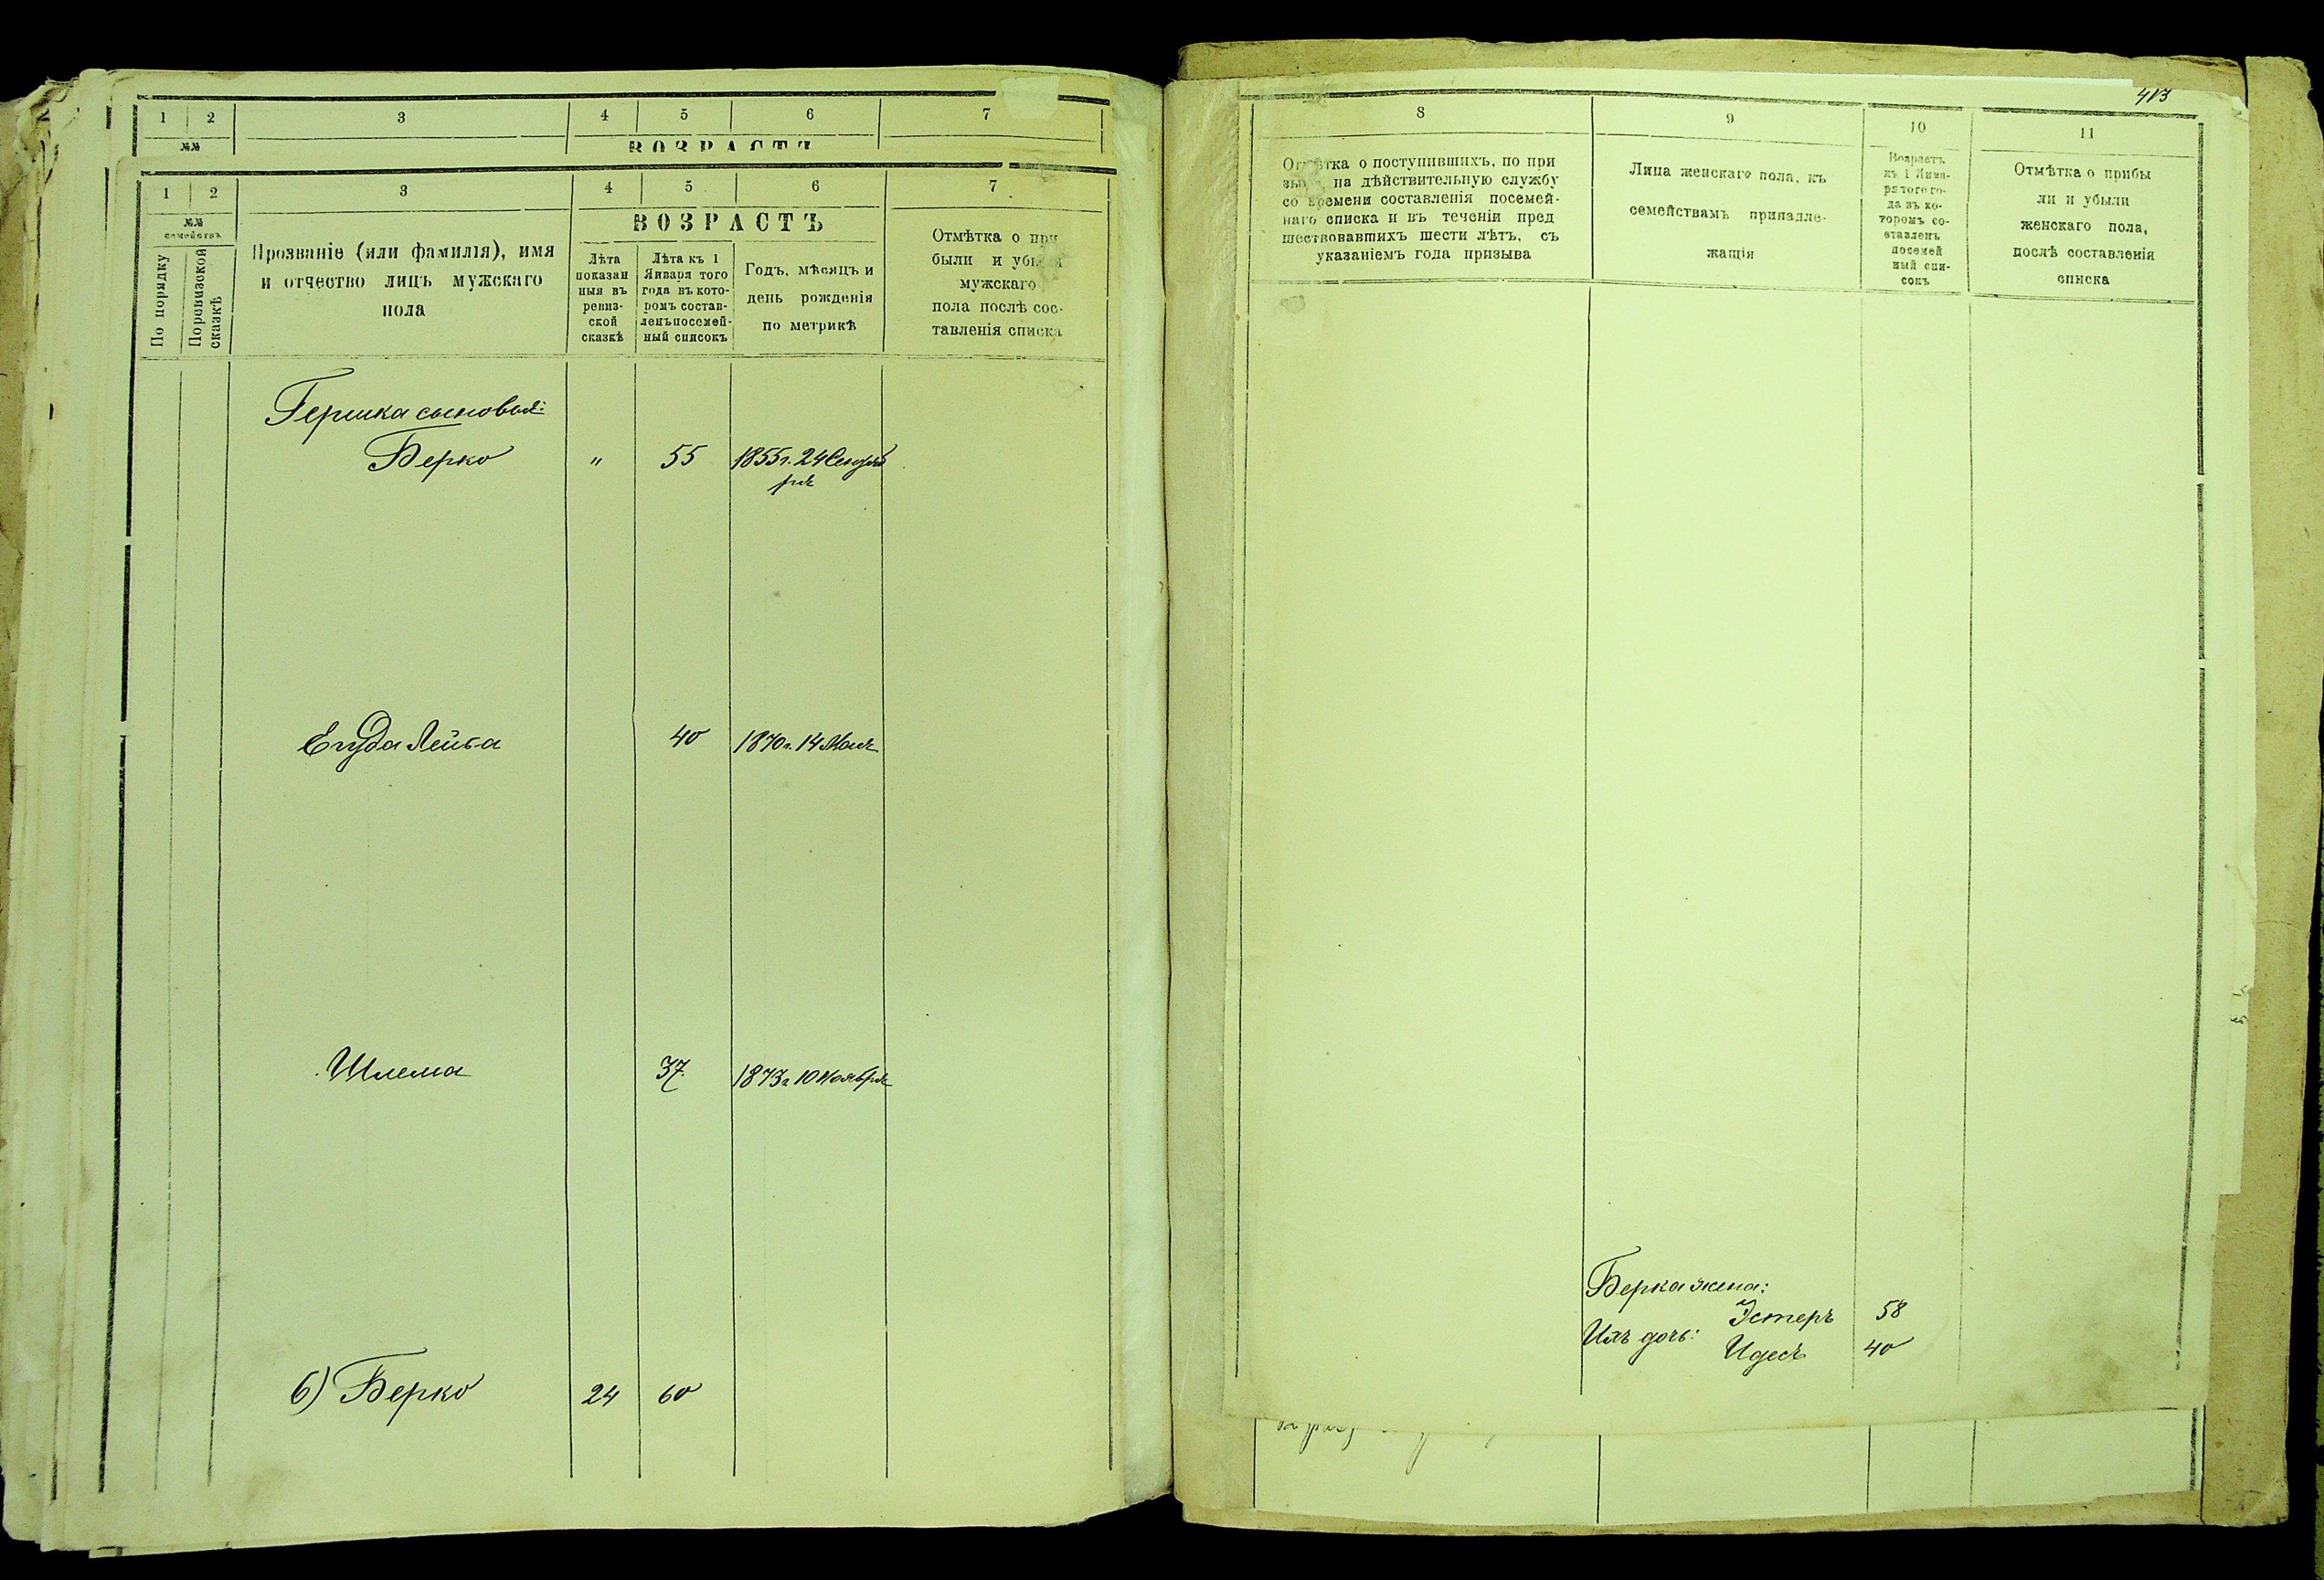 1 2 3 4 5 6 7
№№
ВОЗРАСТЪ
1 2 3 4 5 6 7
№№
семействъ
По порядку
По ревизской
сказкѣ
Прозваніе (или фамилія), имя
и отчество лицъ мужскаго
пола
ВОЗРАСТЪ
Лѣта
показан
ныя въ
ревиз-
ской
сказкѣ
Лѣта къ 1
Января того
года въ кото-
ромъ состав-
ленъ посемей-
ный списокъ
Годъ, мѣсяцъ и
день рожденія
по метрикѣ
Отмѣтка о при
были и убыли
мужскаго
пола послѣ сос-
тавленія списка
Гершка сыновья:
Берко " 55 1855 г. 24 Сентяб
ря
Егуда Лейба 40 1870 г. 14 Мая
Шлема 37. 1873 г. 10 Ноября
6) Берко 24 60
413
8 9 10 11
Отмѣтка о поступившихъ, по при
зыву, на дѣйствительную службу
со времени составленія посемей-
наго списка и въ теченіи пред
шествовавшихъ шести лѣтъ, съ
указаніемъ года призыва
Лица женскаго пола, къ
семействамъ принадле-
жащія
Возрастъ
къ 1 Янва-
ря того го-
да въ ко-
торомъ со-
ставленъ
посемей
ный спи-
сокъ
Отмѣтка о прибы
ли и убыли
женскаго пола,
послѣ составленія
списка
Берка жена:
Эстеръ 58
Ихъ дочь:
Идесъ 40